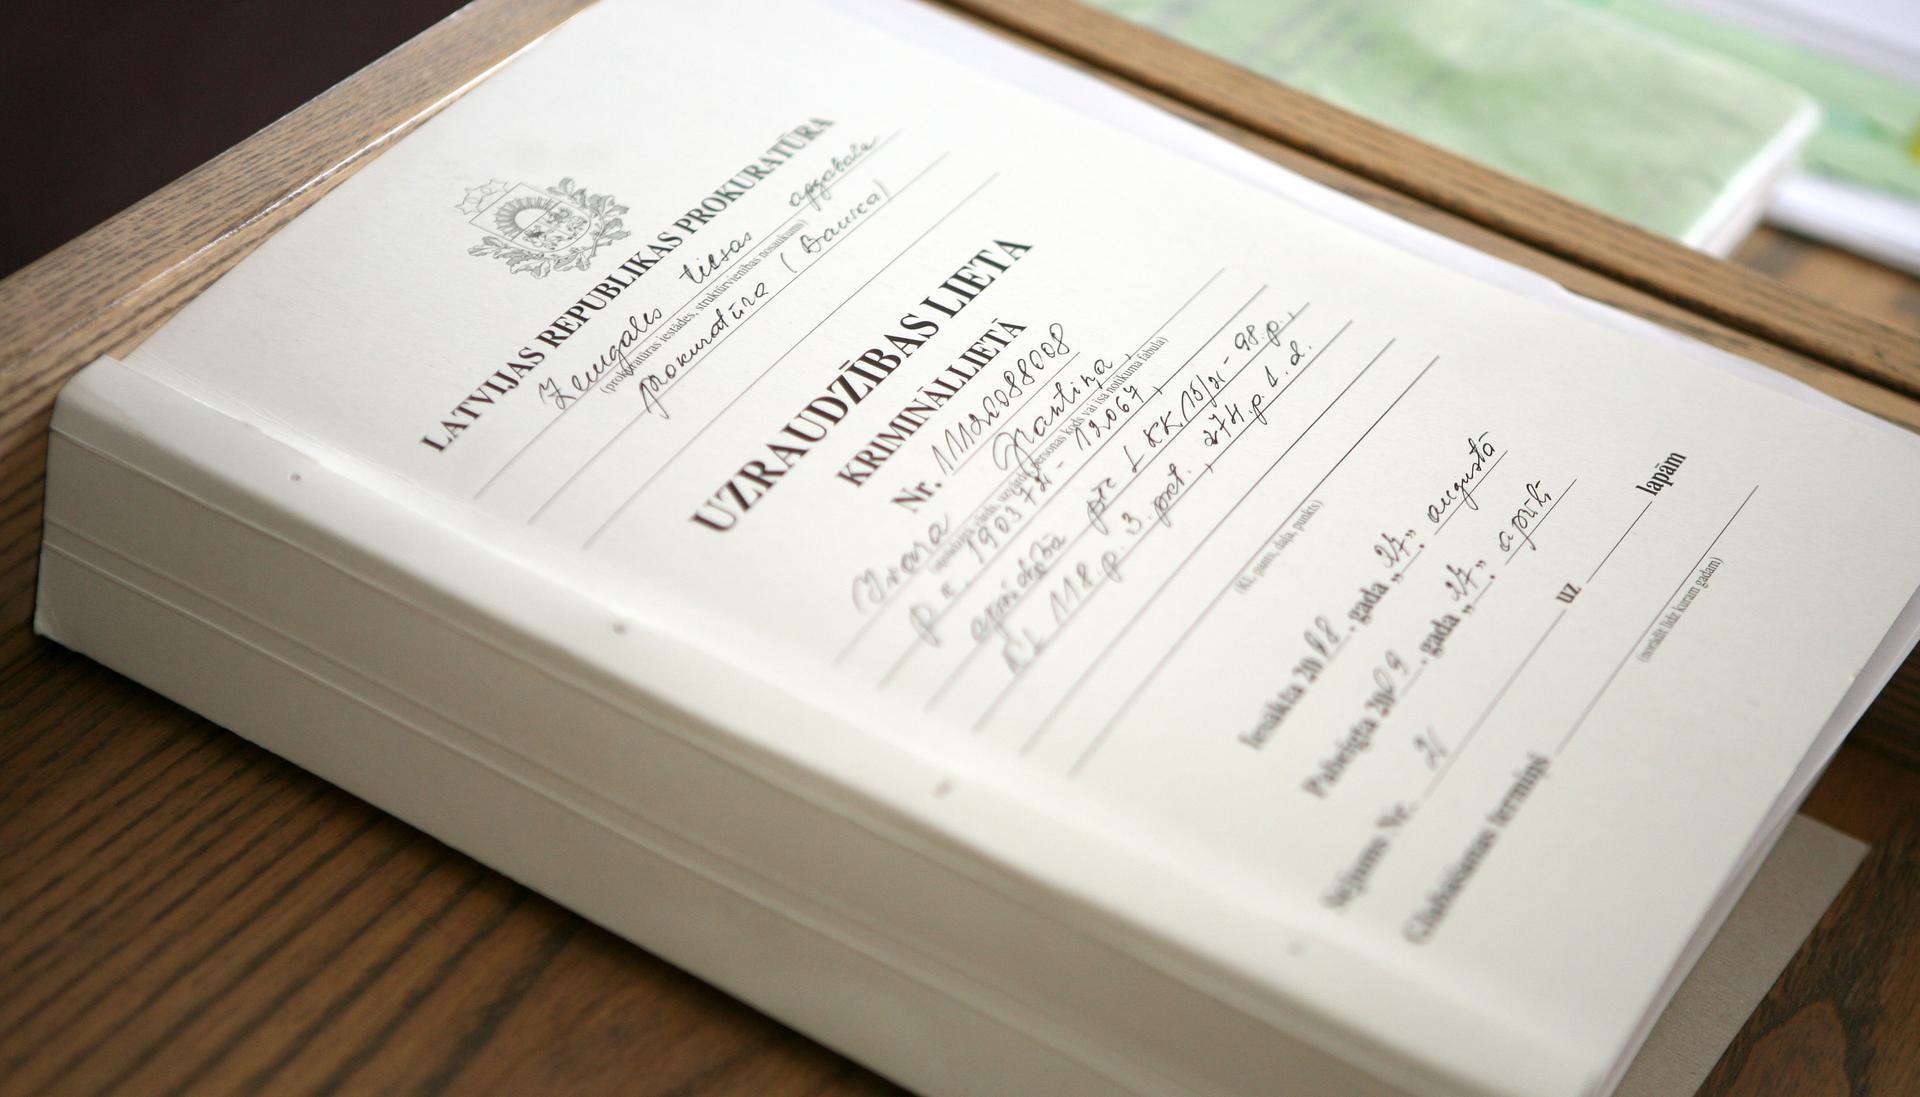 LATVIJAS REPUBLIKAS PROKURATŪRA
Zemgales tiesas apgabala
(prokuratūras iestādes, struktūrvienības nosaukums)
prokuratūra (Bauska)
UZRAUDZĪBAS LIETA
KRIMINĀLLIETĀ
Nr. 11120088008
Ivara Grantiņa,
vārds, uzvārds, personas kods vai īsa notikuma fabula)
p.k. 190372-12067,
apsūdzībā pēc LKK 15/21-98.p.,
KL 118.p. 3. pkt., 274.p.1.d.
(KL pants, daļa, punkts)
Iesākta 2008. gada „27”. augustā
Pabeigta 2009. gada „27”. aprīlī
Sējums Nr. 21 uz lapām
Glabāšanas termiņš
(norādīt līdz kuram gadam)